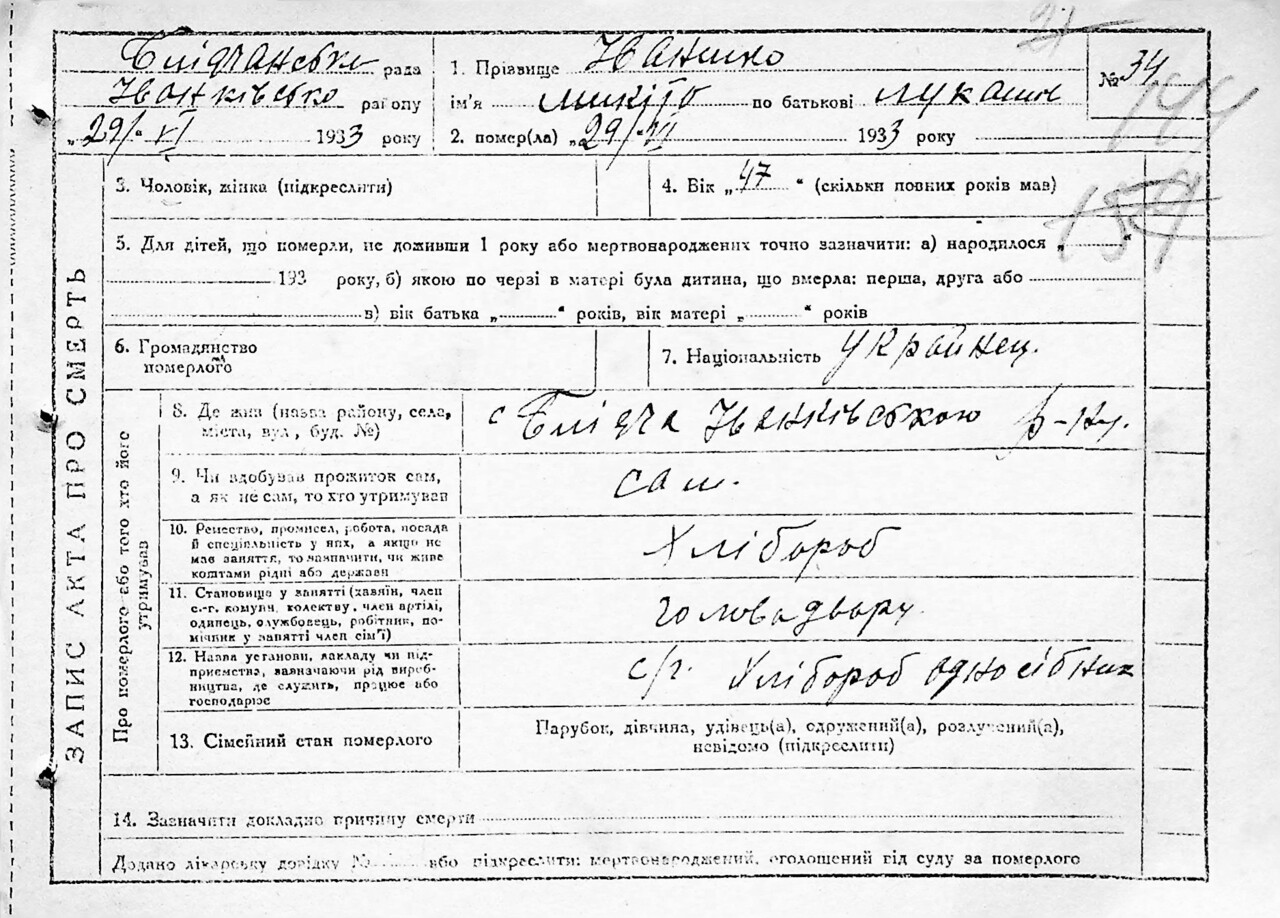 21
Блідчанська рада 1. Прізвище Іваненко № 34
Іванківсько району ім'я Микито по батькові Лукашов 144
„29/-VI 1933 року 2. помер(ла) „29/-VI 1933 року
3. Чоловік, жінка (підкреслити) 4. Вік „47“ (скільки повних років мав)
154
5. Для дітей, що померли, не доживши 1 року або мертвонароджених точно зазначити: а) народилося „ “
193 року, б) якою по черзі в матері була дитина, що вмерла: перша, друга або
в) вік батька „ “ років, вік матері „ “ років
6. Громадянство
померлого
7. Національність Українец.
ЗАПИС АКТА ПРО СМЕРТЬ
Про померлого або того хто його
утримував
8. Де жив (назва району, села,
міста, вул, буд. №)
с Блідча Іванківського р-ну.
9. Чи здобував прожиток сам,
а як не сам, то хто утримував
сам.
10. Ремество, промисел, робота, посада
й спеціяльність у них, а якщо не
мав заняття, то зазначити, чи живе
коштами рідні або держави
Хлібороб
11. Становище у занятті (хазяїн, член
с.-г. комуни, колективу, член артілі,
одинець, службовець, робітник, по-
мічник у занятті член сім'ї)
голова двору.
12. Назва установи, закладу чи під-
приємства, зазначаючи рід вироб-
ництва, де служить, працює або
господарює
с/г. Хлібороб односібник
13. Сімейний стан померлого
Парубок, дівчина, удівець(а), одружений(а), розлучений(а),
невідомо (підкреслити)
14. Зазначити докладно причину смерти
Додано лікарську довідку № або підкреслити: мертвонароджений, оголошений від суду за померлого